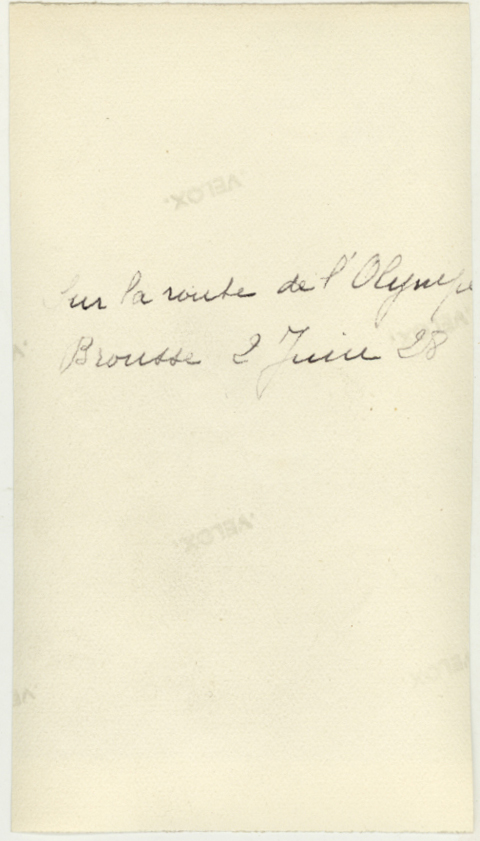 VELOX
Sur la route de l'Olympe
Brousse 2 Juin 28
VELOX